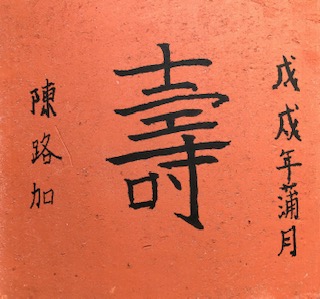 戊戌年蒲月
壽
陳路加